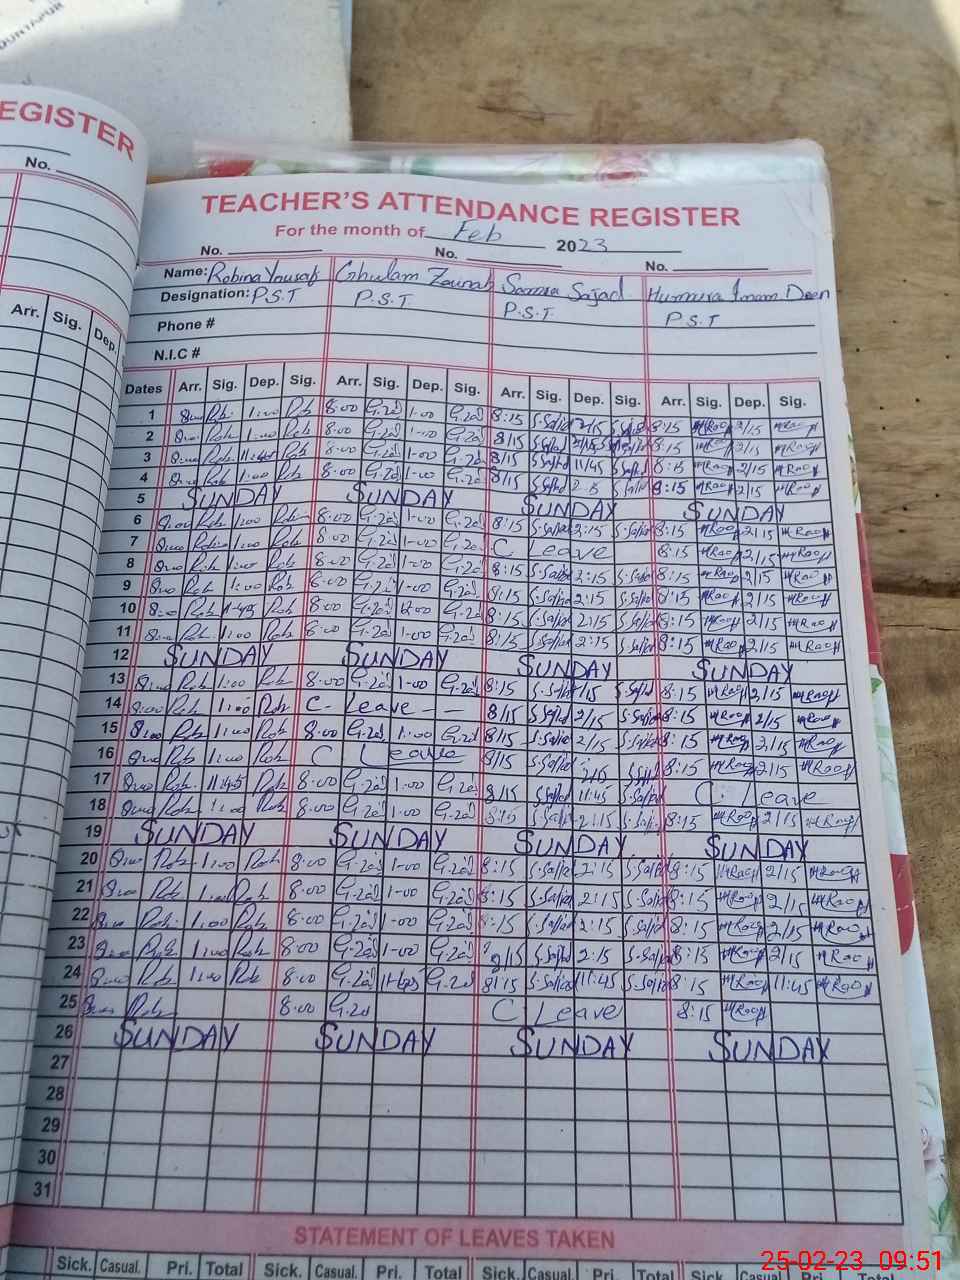 OUNTAPUR
EGISTER
No.
Arr. Sig. Dep.
TEACHER'S ATTENDANCE REGISTER
For the month of Feb 2023
No. No. No.
Name: Robina Yousaf Ghulam Zainab Samra Sajad Humera Imam Deen
Designation: P.S.T P.S.T P.S.T P.S.T
Phone #
N.I.C #
Dates Arr. Sig. Dep. Sig. Arr. Sig. Dep. Sig. Arr. Sig. Dep. Sig. Arr. Sig. Dep. Sig.
1 8:00 Rob 1:00 Rob 8:00 G.Zai 1-00 G.Zai 8:15 S.Sajad 2/15 S.Sajad 8:15 2/15
2 8:00 Rob 1:00 Rob 8:00 G.Zai 1-00 G.Zai 8/15 S.Sajad 2/15 8:15 2/15
3 8:00 Rob 11:45 Rob 8:00 G.Zai 1-00 G.Zai 8/15 S.Sajad 11/45 S.Sajad 8:15 2/15
4 8:00 Rob 1:00 Rob 8:00 G.Zai 1-00 G.Zai 8/15 S.Sajad 2:15 S.Sajad 8:15 2/15
5 SUNDAY SUNDAY SUNDAY SUNDAY
6 8:00 Rob 1:00 Rob 8:00 G.Zai 1-00 G.Zai 8:15 S.Sajad 2:15 S.Sajad 8:15 2/15
7 8:00 Rob 1:00 Rob 8:00 G.Zai 1-00 G.Zai C Leave 8:15 2/15
8 8:00 Rob 1:00 Rob 8:00 G.Zai 1-00 G.Zai 8:15 S.Sajad 2:15 S.Sajad 8:15 2/15
9 8:00 Rob 1:00 Rob 8:00 G.Zai 1-00 G.Zai 8:15 S.Sajad 2:15 S.Sajad 8:15 2/15
10 8:00 Rob 11:45 Rob 8:00 G.Zai G.Zai 8:15 S.Sajad 2:15 S.Sajad 8:15 2/15
11 8:00 Rob 1:00 Rob 8:00 G.Zai 1-00 G.Zai 8/15 S.Sajad 2:15 S.Sajad 8:15 2/15
12 SUNDAY SUNDAY SUNDAY SUNDAY
13 8:00 Rob 1:00 Rob 8:00 G.Zai 1-00 G.Zai 8:15 S.Sajad 2/15 S.Sajad 8:15 2/15
14 8:00 Rob 1:00 Rob C- Leave - - 8/15 S.Sajad 2/15 S.Sajad 8:15 2/15
15 8:00 Rob 1:00 Rob 8:00 G.Zai 1:00 G.Zai 8/15 S.Sajad 2/15 S.Sajad 8:15 2/15
16 8:00 Rob 1:00 Rob C Leave 8/15 S.Sajad 2/15 8:15 2/15
17 8:00 Rob 11:45 Rob 8:00 G.Zai 1-00 G.Zai 8/15 S.Sajad 11:45 S.Sajad C. Leave
18 8:00 Rob 1:00 Rob 8:00 G.Zai 1-00 G.Zai 8:15 S.Sajad 2:15 S.Sajad 8:15 2/15
19 SUNDAY SUNDAY SUNDAY SUNDAY
20 8:00 Rob 1:00 Rob 8:00 G.Zai 1-00 G.Zai 8:15 S.Sajad 2:15 S.Sajad 8:15 2/15
21 8:00 Rob 1:00 Rob 8:00 G.Zai 1-00 G.Zai 8:15 S.Sajad 2:15 S.Sajad 8:15 2/15
22 8:00 Rob 1:00 Rob 8:00 G.Zai 1-00 G.Zai 8:15 S.Sajad 2:15 S.Sajad 8:15 2/15
23 8:00 Rob 1:00 Rob 8:00 G.Zai 1-00 G.Zai 8/15 S.Sajad 2:15 S.Sajad 8:15 2/15
24 8:00 Rob 1:00 Rob 8:00 G.Zai G.Zai 8/15 S.Sajad 11:45 S.Sajad 8:15 11:45
25 8:00 Rob 8:00 G.Zai C Leave 8:15
26 SUNDAY SUNDAY SUNDAY SUNDAY
27
28
29
30
31
STATEMENT OF LEAVES TAKEN
Sick. Casual. Pri. Total Sick. Casual. Pri. Total Sick. Casual. Pri. Total Sick. Casual. Pri. Total
25-02-23 09:51